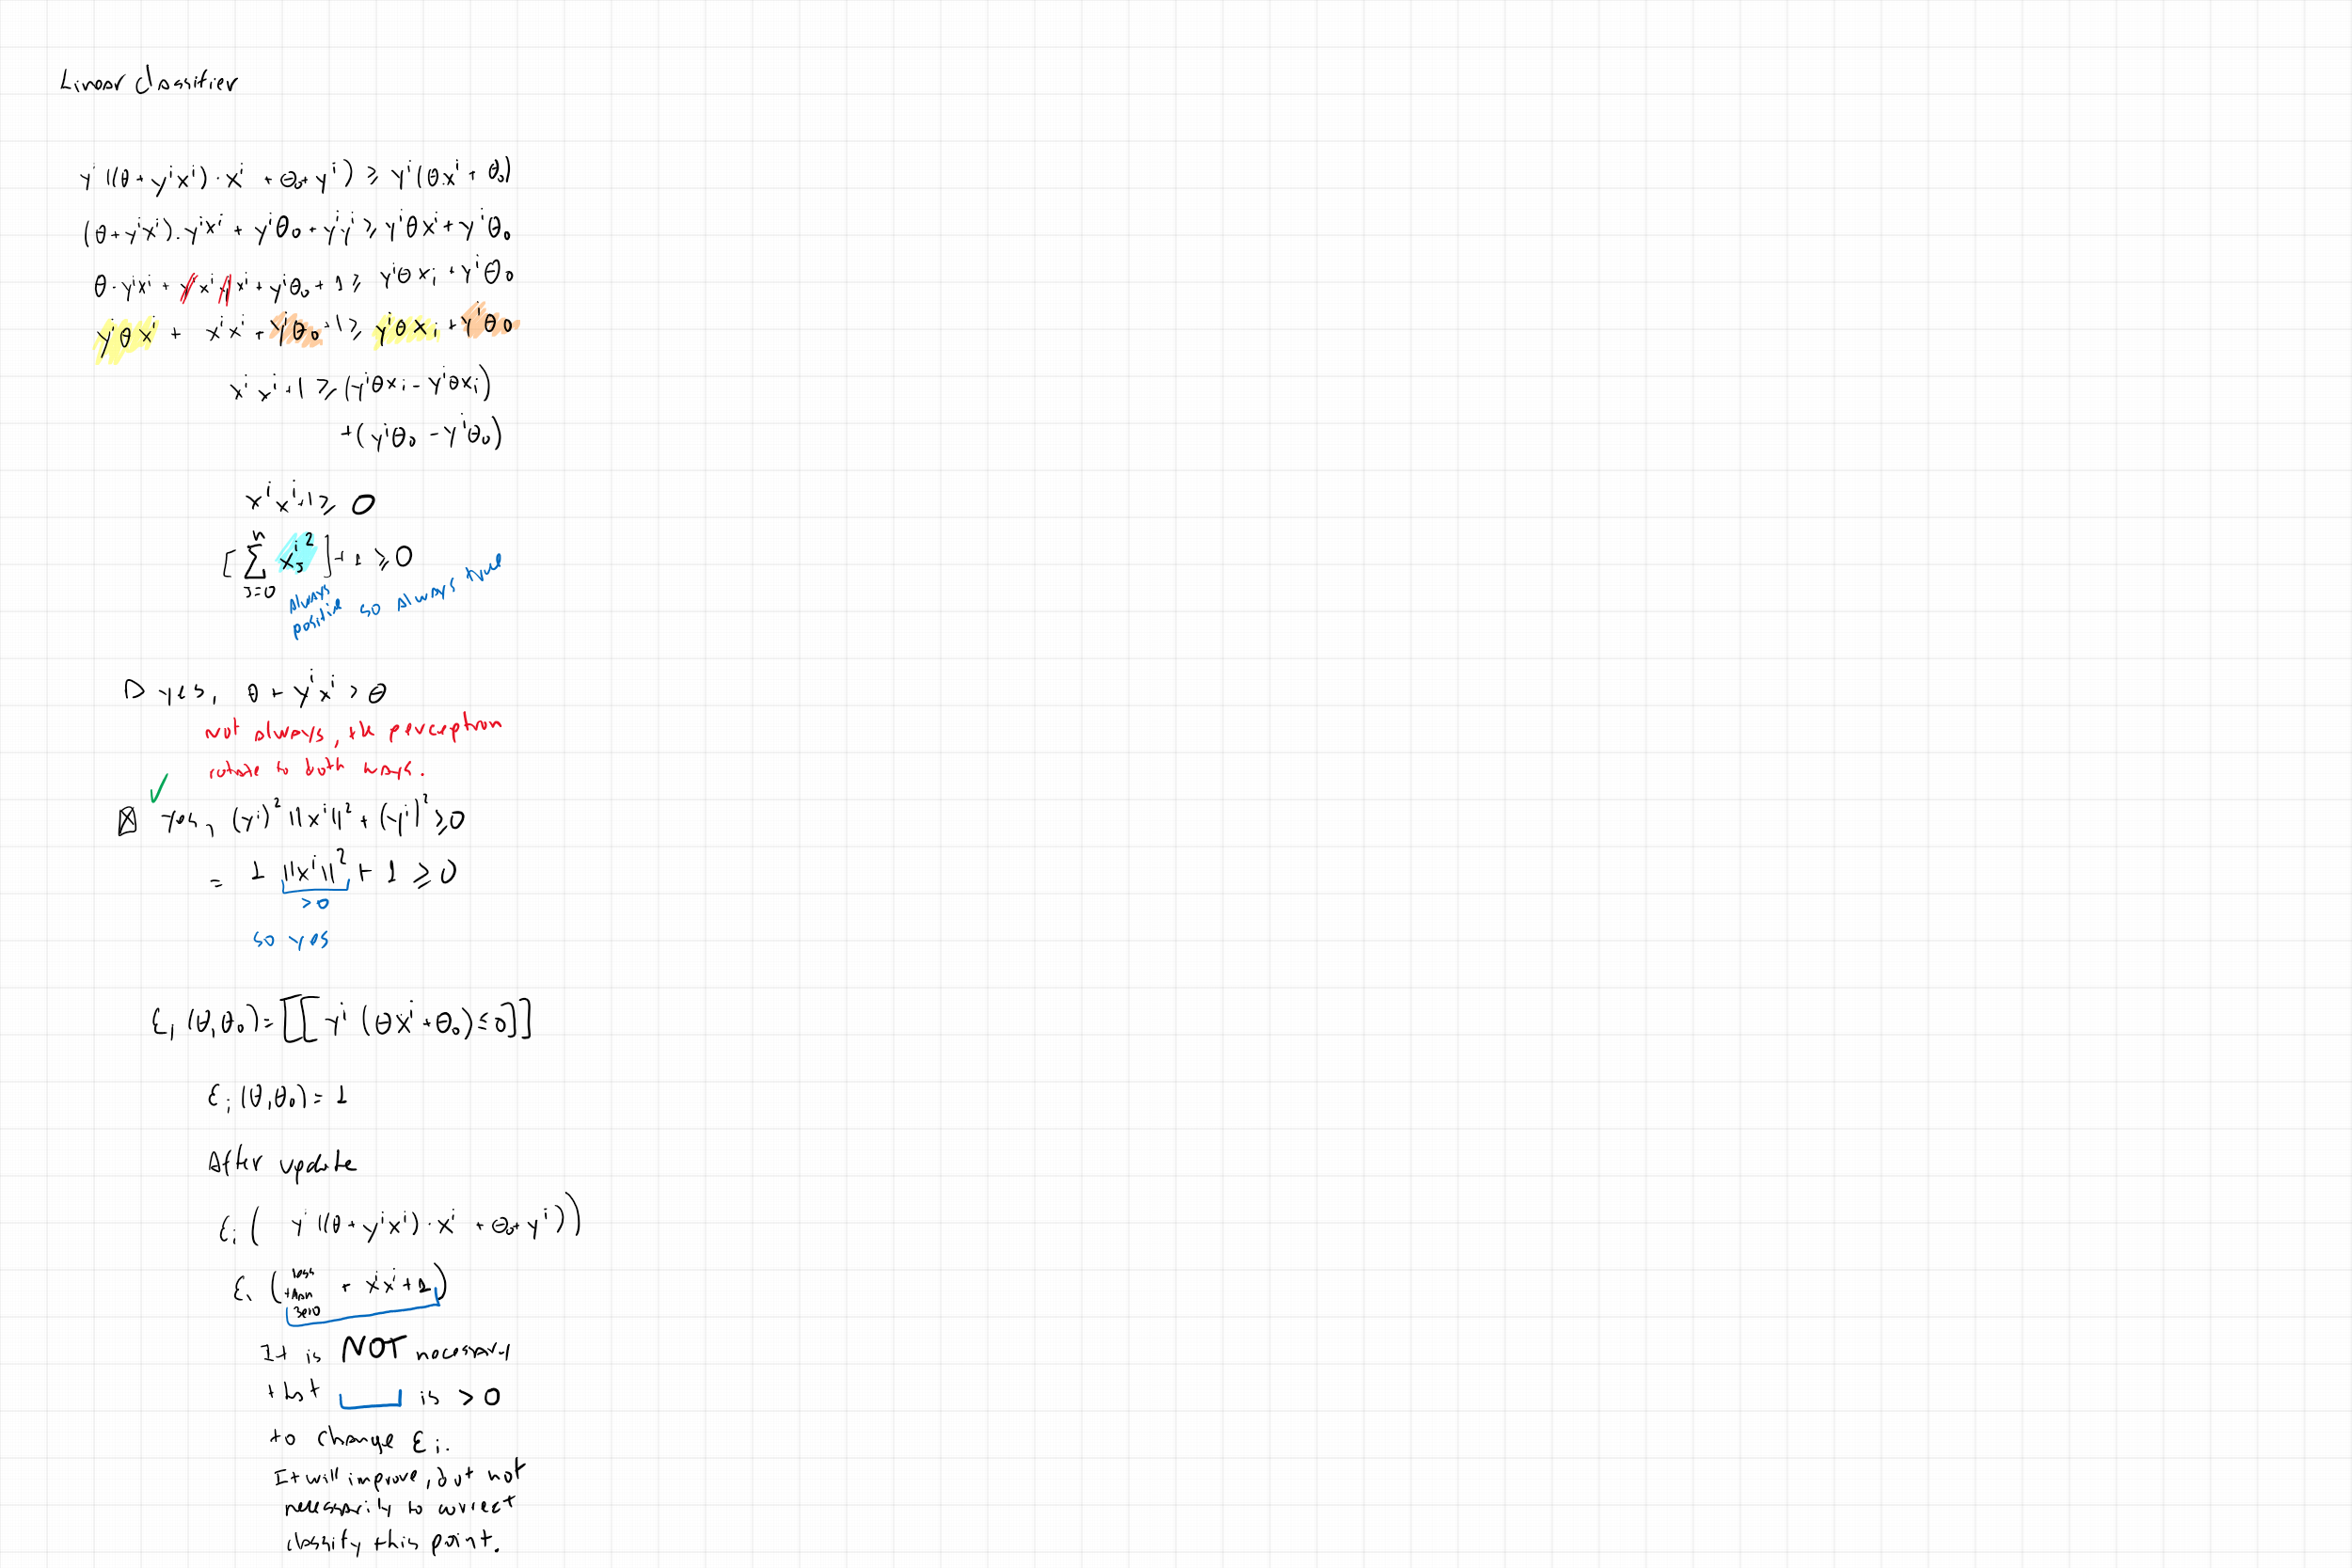 Linear Classifier
yⁱ((θ + yⁱxⁱ)·xⁱ + θ₀ + yⁱ) ≥ yⁱ(θ·xⁱ + θ₀)
(θ + yⁱxⁱ)·yⁱxⁱ + yⁱθ₀ + yⁱyⁱ ≥ yⁱθxⁱ + yⁱθ₀
θ·yⁱxⁱ + yⁱxⁱyⁱxⁱ + yⁱθ₀ + 1 ≥ yⁱθxᵢ + yⁱθ₀
yⁱθxⁱ + xⁱxⁱ + yⁱθ₀ + 1 ≥ yⁱθxᵢ + yⁱθ₀
xⁱxⁱ + 1 ≥ (yⁱθxᵢ - yⁱθxᵢ)
+ (yⁱθ₀ - yⁱθ₀)
xⁱxⁱ + 1 ≥ 0
[∑ⁿⱼ₌₀ xⱼⁱ²] + 1 ≥ 0
always
positive so always true
yes, θ + yⁱxⁱ > θ
Not always, the perceptron
rotate to both ways.
✓
☒ Yes, (yⁱ)²||xⁱ||² + (yⁱ)² ≥ 0
= 1 ||xⁱ||² + 1 ≥ 0
> 0
so yes
εᵢ(θ,θ₀) = [[yⁱ(θxⁱ + θ₀) ≤ 0]]
εᵢ(θ,θ₀) = 1
After update
εᵢ( yⁱ((θ + yⁱxⁱ)·xⁱ + θ₀ + yⁱ))
εᵢ (less than zero + xⁱxⁱ + 1)
It is NOT necessary
that is > 0
to change εᵢ.
It will improve, but not
necessarily to correct
classify this point.